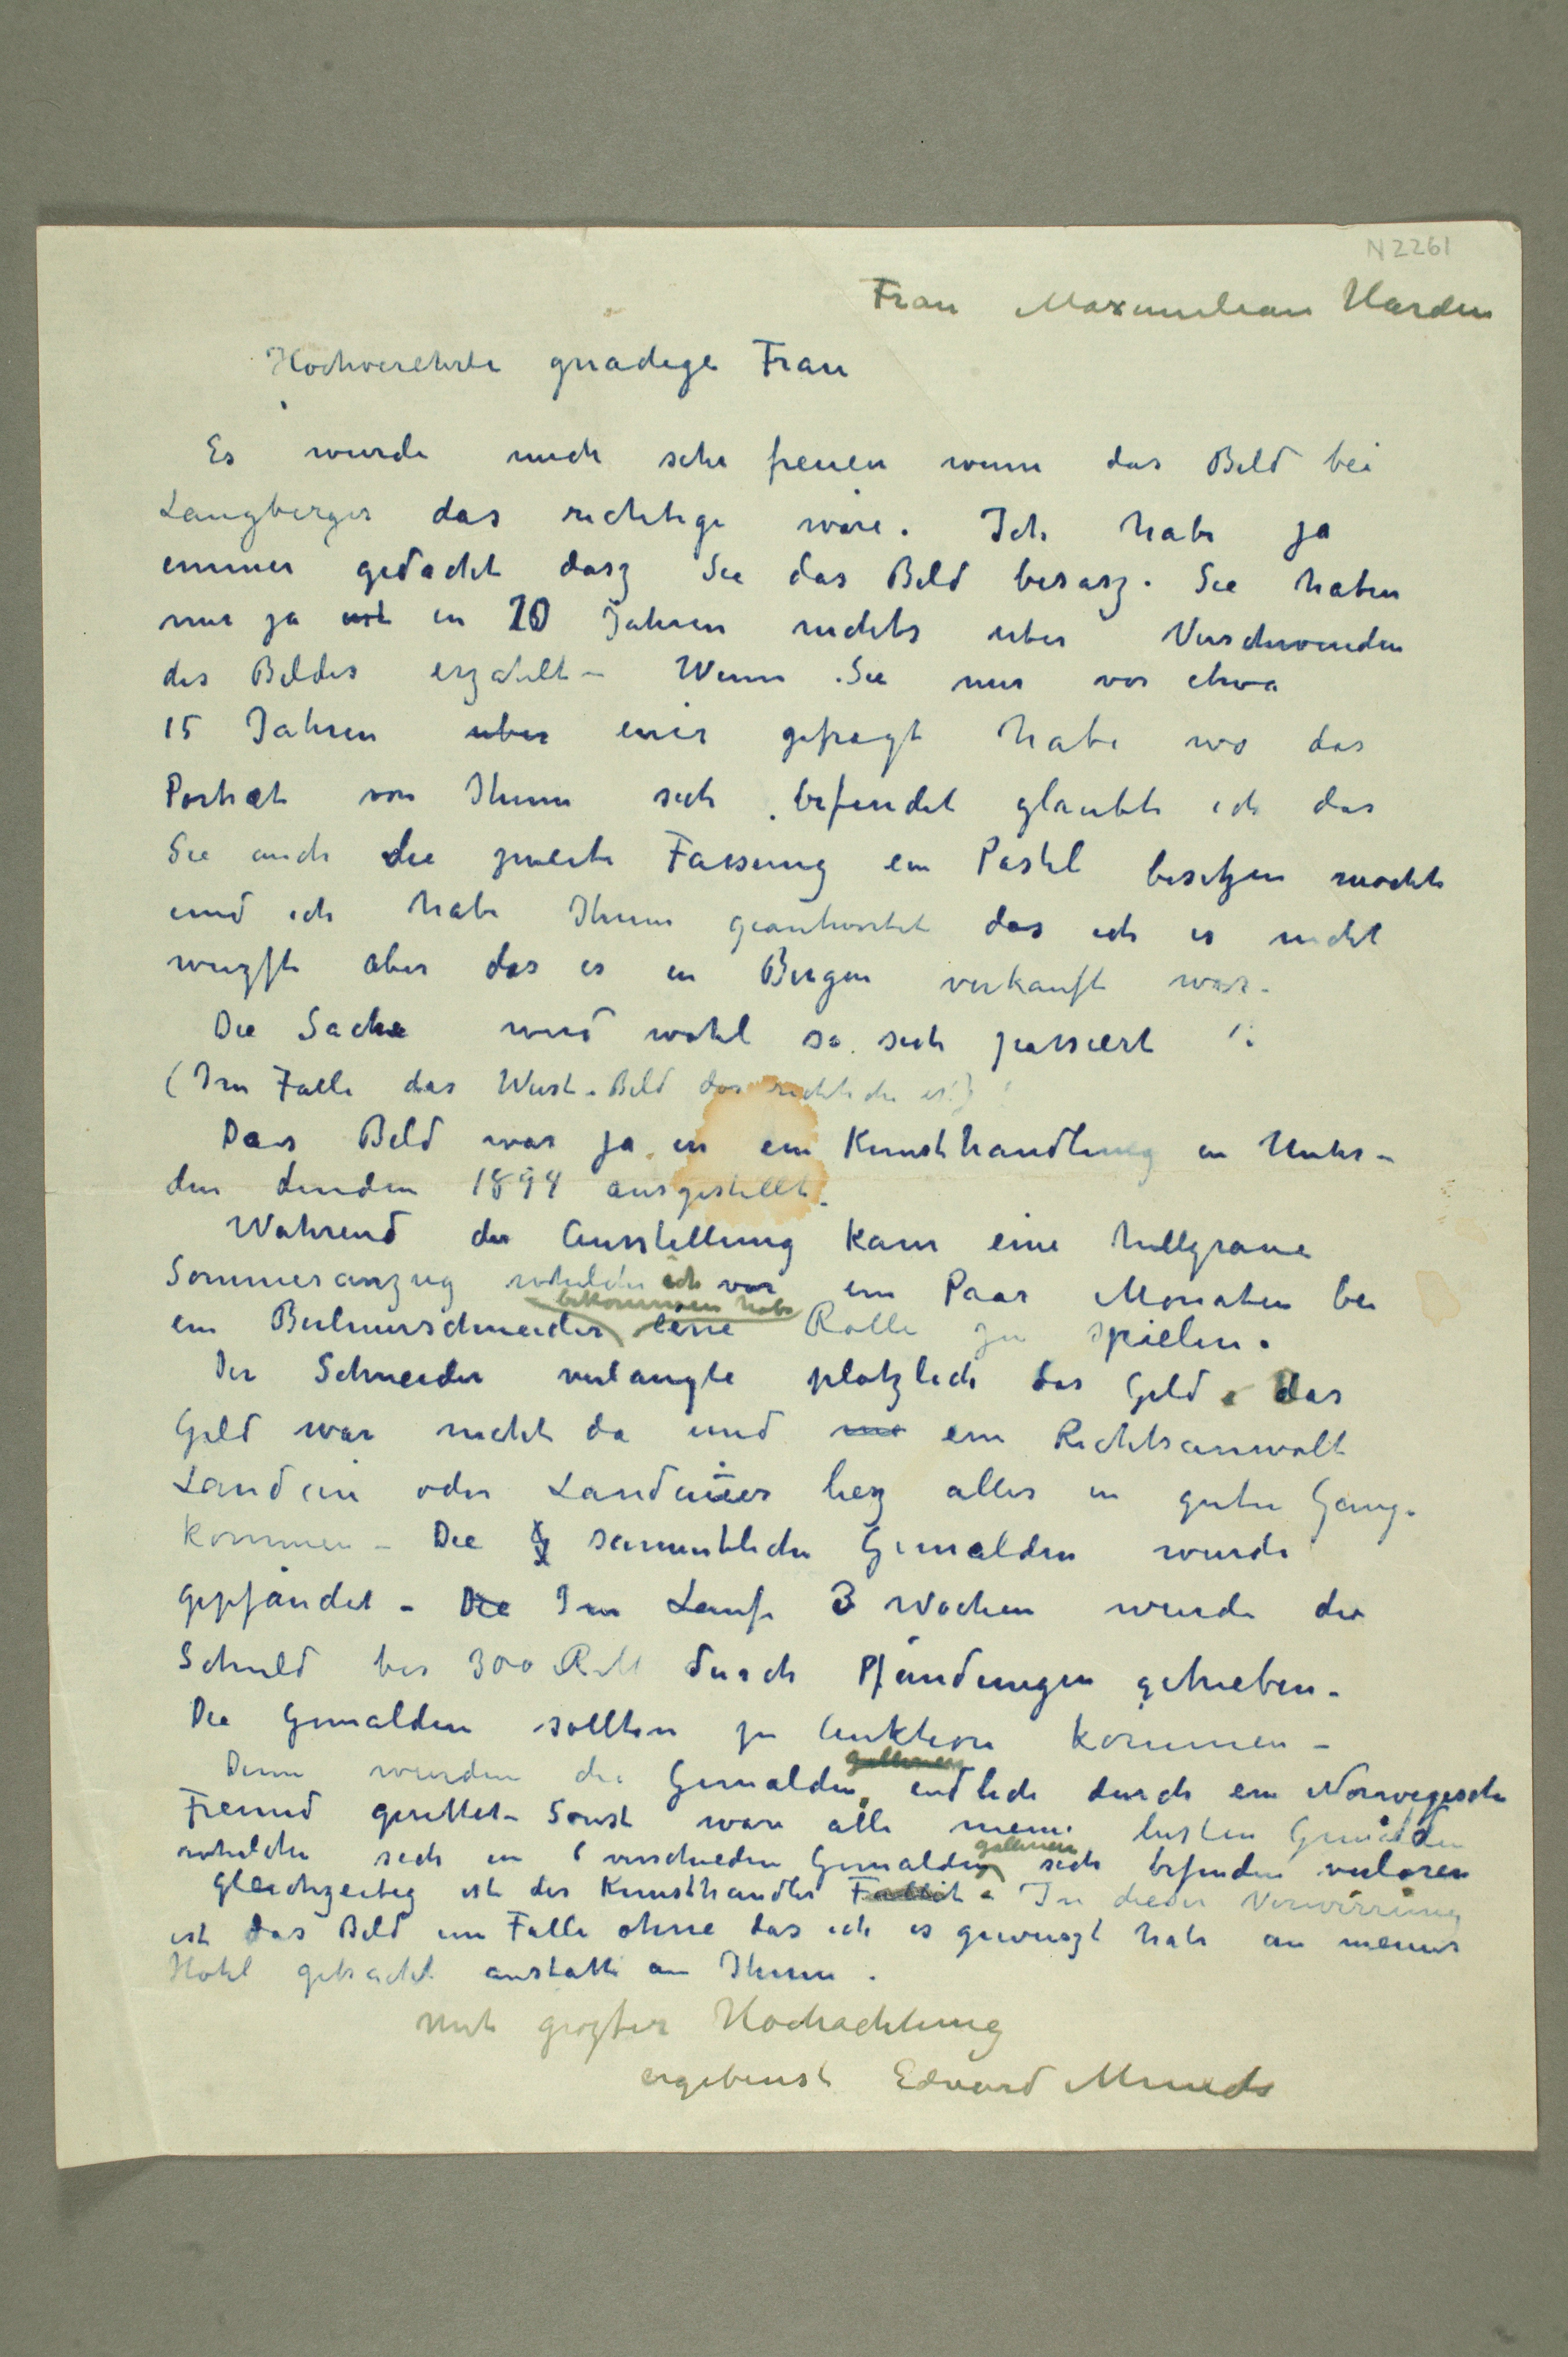 N 2261
Frau Maximilian Harden
Hochverehrte gnadige Frau
Es wurde mich sehr freuen wenn das Bild bei
Langberger das richtige wäre. Ich habe ja
immer gedacht dasz Sie das Bild besasz. Sie haben
mir ja in 20 Jahren nichts uber Verschwinden
des Bildes erzahlt – Wenn Sie mir vor etwa
15 Jahren uber gefragt habe wo das
Portrat von Ihnen sich befindet glaubte ich das
Sie auch die zweite Fassung ein Pastel besitzen mochte
und ich habe Ihnen geantwortet das ich es nicht
wuszte aber das es in Bergen verkauft war.
Die Sache wird wohl so sich passiert
(Im Falle das Wust. Bild das richtiche ist)
Das Bild war ja in ein Kunsthandlung in Unter –
den Linden 1894 ausgestellt.
Wahrend der Ausstellung kam eine hellgraue
Sommeranzug whelche ich vor ein Paar Monaten bei
bekommen habe
ein Berlinerschneider eine Rolle zu spielen.
Der Schneider verlangte plotzlich das Geld. das
Geld war nicht da und ein Richtsanwalt
Landein oder Landauer liesz alles in guten Gang.
kommen – Die sammtliche Gemalden wurde
gepfändet – Die Im Laufe 3 Wochen wurde die
Schuld bis 300 RM durch Pfändungen getrieben.
Die Gemalden sollten zu Auktion kommen –
gallerien
Dann wurden die Gemalden endlich durch ein Norwegische
Freund gerettet – Sonst ware alle meine besten Gemälden
gallerien
whelche sich in 6 verschieden Gemalden sich befinden verloren
Gleichzeitig ist der Kunsthandler Fallit. In dieser Verwirrung
ist das Bild im Falle ohne das ich es gewuszt habe an meines
Hotel gebracht anstatt an Ihnen.
Mit groszter Hochachtung
ergebenst Edvard Munch